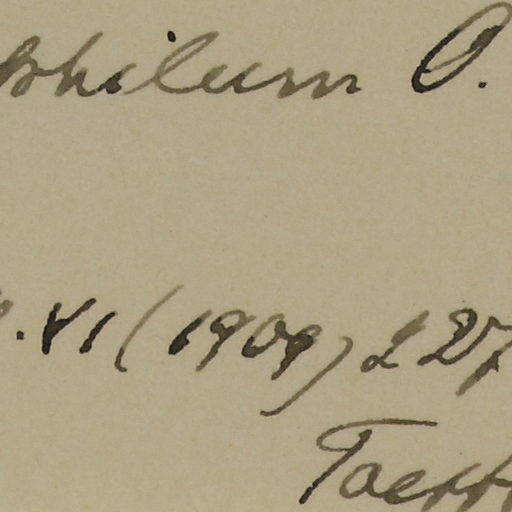 philum O.
.VI (1909) 227
Taef